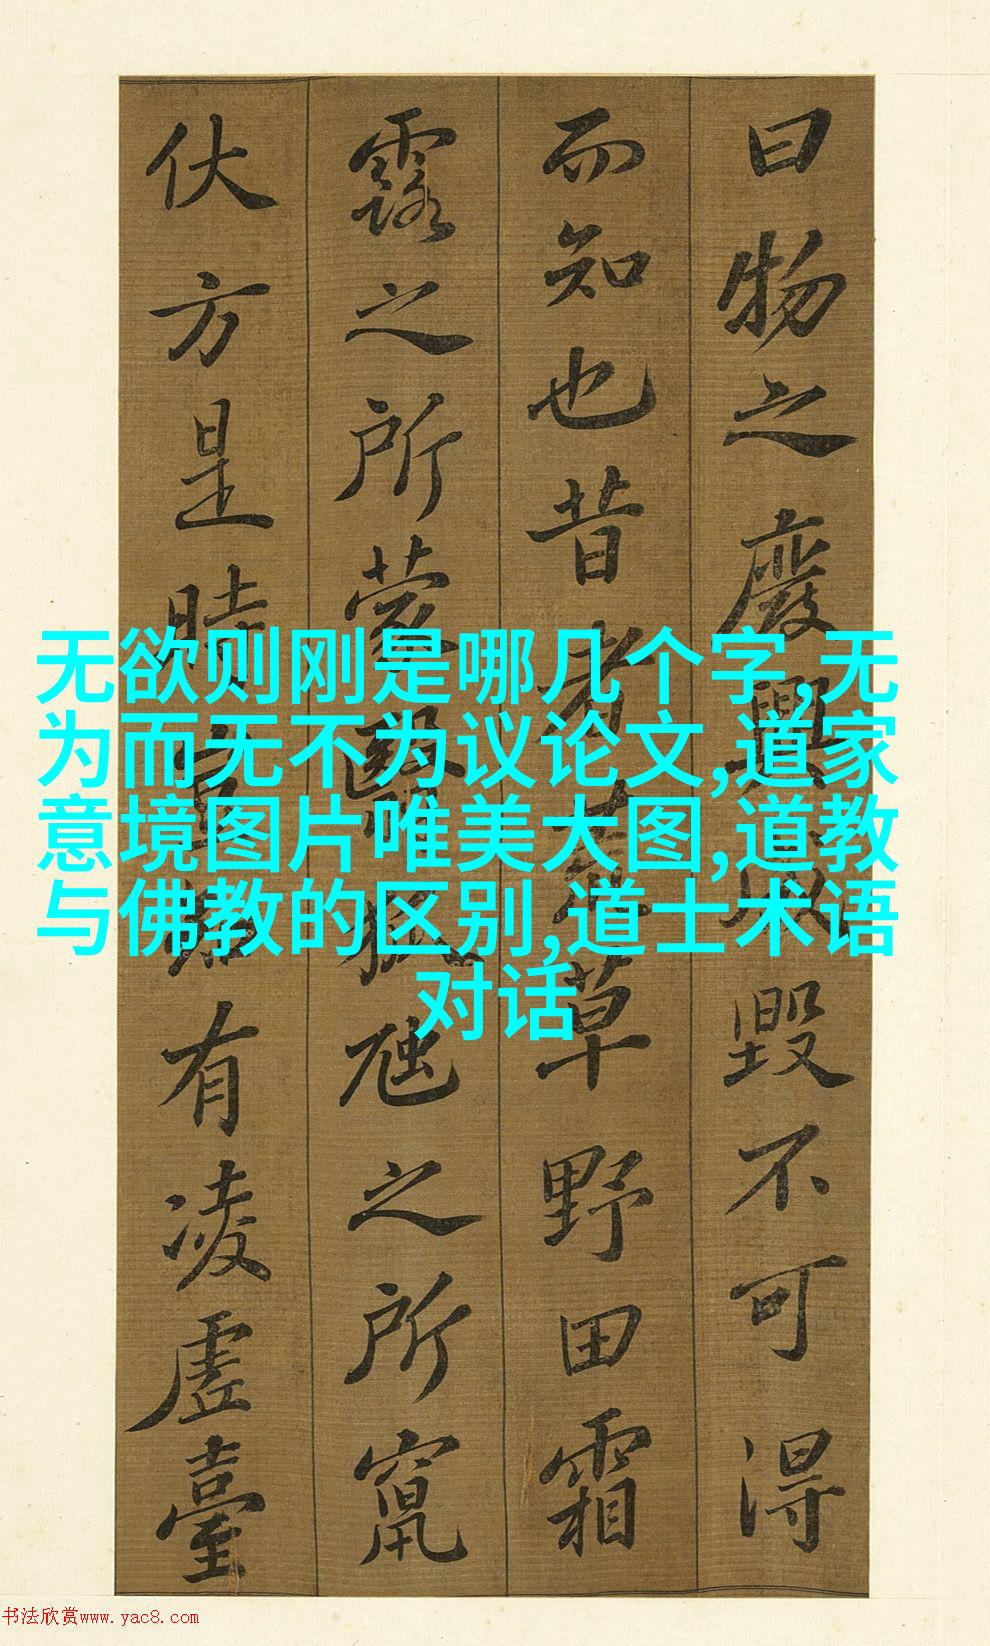 曰物之廢興成毀不可得
而知也昔者荒草野田霜
露之所蒙翳狐虺之所竄
伏方是時豈知有凌虛臺
无欲则刚是哪几个字,无
为而无不为议论文,道家
意境图片唯美大图,道教
与佛教的区别,道士术语
对话
书法欣赏www.yac8.com